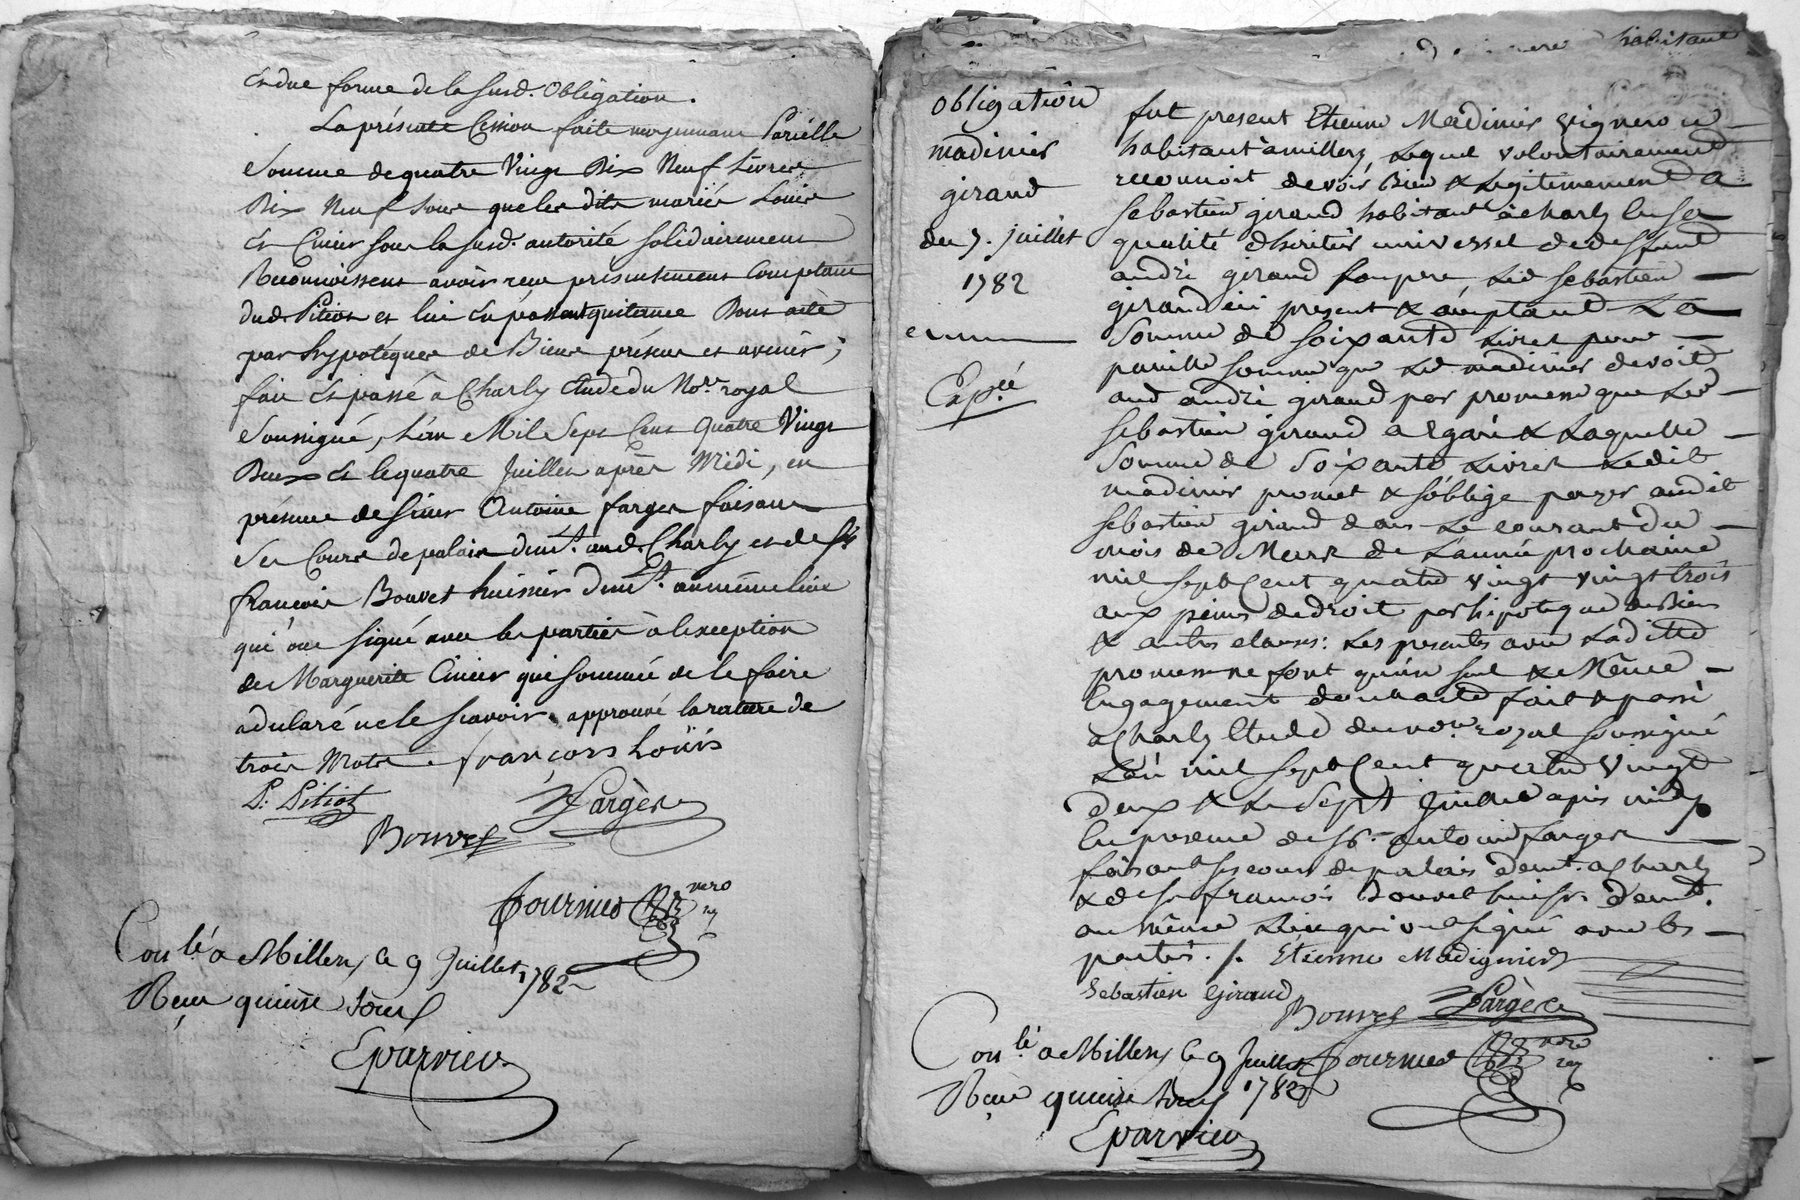 En due forme de la susd. Obligation.
La présente Cession faite moyennant Pareille
Somme de quatre Vingt Dix Neuf Livres
Dix Neuf Sous que les dits mariés Louis
et Cinier sous la susd. autorité solidairement
Reconnoissent avoir reçu presentement Comptant
dud. Pitiot et lui en passent quitance Dont acte
par hypotéques de Biens présens et avenir;
fait et passé à Charly Etude du No.re royal
Soussigné, L'an Mil Sept Cens Quatre Vingt
Deux et le quatre Juillet après Midi, en
présence de Sieur Antoine farges faisant
Ses Cours de palais demt. aud. Charly et de Sr.
françois Bouvet huissier demt. au même lieu
qui ont signé avec les parties à l'exception
de Marguerite Cinier qui sommée de le faire
a declaré ne le scavoir. approuvé la rature de
trois Mots. françois Loüis
P. Pitiot fargès
Bouvet
fournier
Con.lé a Millery le 9 Juillet 1782
Reçu quinze sous
Eparvier
habitant
obligation
madinier
giraud
du 7. juillet
1782
Exp.ié
fut present Etienne Madinier vigneron
habitant a millery, Lequel volontairement
reconnoit devoir Bien & Legitimement a
Sebastien giraud habitant a charly en sa
qualité d'heritier universel de deffunt
andré giraud son pere, Led sebastien
giraud ici present & acceptant La
Somme de soixante Livres pour
pareille somme que Led madinier devoit
aud andré giraud par promesse que Led
sebastien giraud a Egaré & Laquelle
Somme de Soixante Livres Ledit
madinier promet & s'oblige payer audit
sebastien giraud dans Le courant du
mois de Mars de L'année prochaine
mil sept Cent quatre vingt vingt trois
aux peines de droit par hipoteque de Biens
& autres clauses: Les presentes avec Laditte
promesse ne font qu'un seul & Même
Engagement dont acte fait & passé
a Charly Etude du no.re royal soussigné
L'an mil sept Cent quatre Vingt
deux & Le Sept Juillet après midy
En presence de sr. antoine farges
faisant ses cours de palais demt. a charly
& de sr françois Bouvet huissier demt.
au même Lieu qui ont signé avec les
parties. /. Etienne Madignier
Sebastien Giraud
Bouvet fargès
Con.lé a Millery le 9 Juillet fournier
Reçu quinze sous 1782
Eparvier